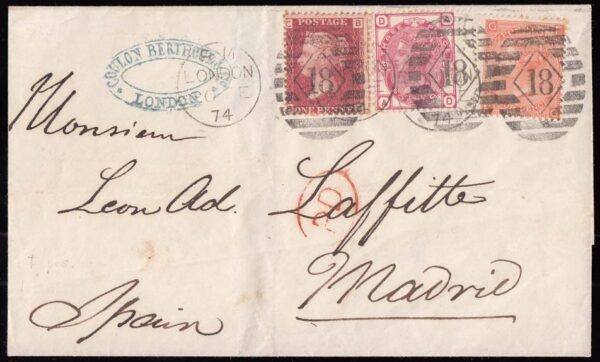 COULON BERTHOUD
LONDON
LONDON
E
74
G B
POSTAGE
ONE PENNY
18
D
A D
18
74
G
18
PD
Monsieur
Leon Ad. Laffitte
Madrid
Spain